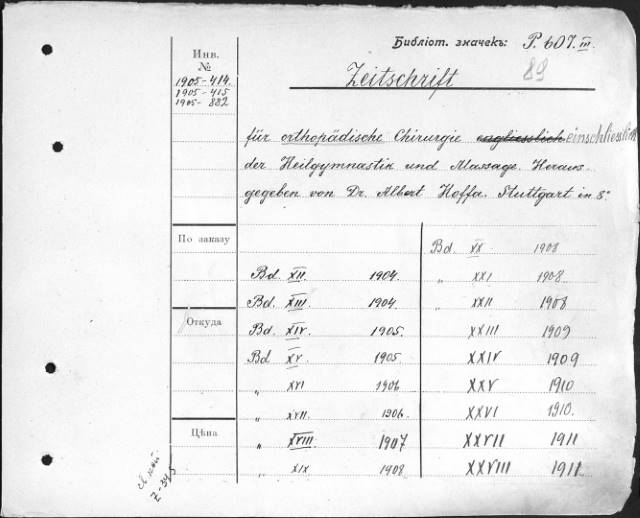 Библіот. значекъ: P. 607. III.
89
Инв.
№
1905-414.
1905-415
1905-882
Zeitschrift
für orthopädische Chirurgie einschliesslich
der Heilgymnastik und Massage. Heraus-
gegeben von Dr. Albert Hoffa. Stuttgart in 8°
По заказу
Откуда
Цѣна
Bd. XII. 1904.
Bd. XIII. 1904.
Bd. XIV. 1905.
Bd XV. 1905
„ XVI 1906
„ XVII. 1906.
„ XVIII. 1907
„ XIX 1908
Bd. XX 1908
„ XXI 1908
„ XXII 1908
XXIII 1909
XXIV 1909
XXV 1910
XXVI 1910.
XXVII 1911
XXVIII 1911